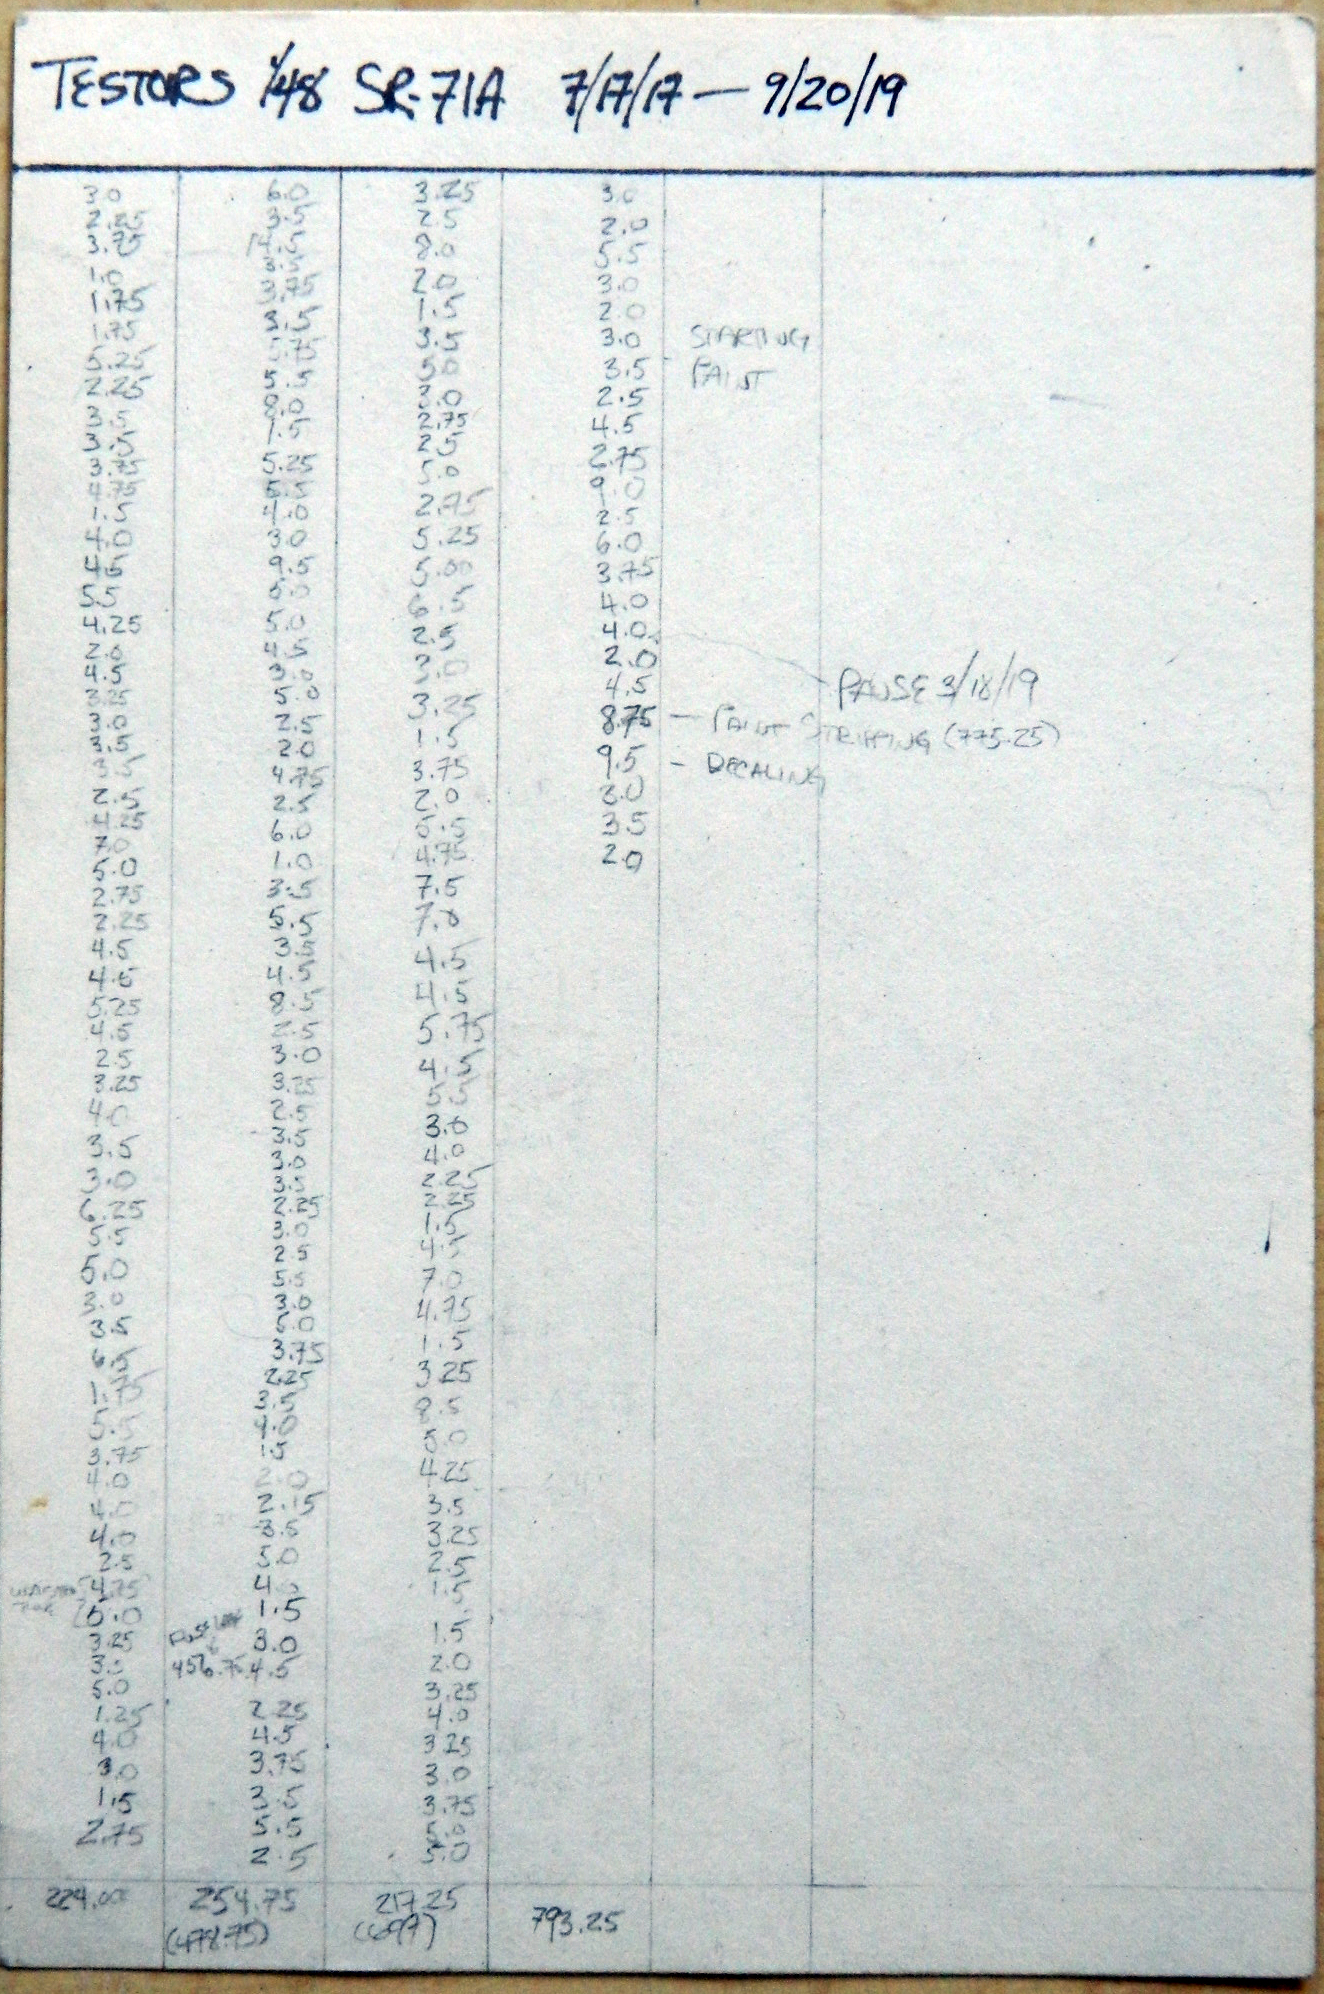 TESTORS 1/48 SR-71A 7/17/17 — 9/20/19
3.0
2.25
3.75
1.0
1.75
1.75
5.25
2.25
3.5
3.5
3.75
4.75
1.5
4.0
4.5
5.5
4.25
2.0
4.5
3.25
3.0
3.5
3.5
2.5
4.25
7.0
5.0
2.75
2.25
4.5
4.5
5.25
4.5
2.5
3.25
4.0
3.5
3.0
6.25
5.5
5.0
3.0
3.5
6.5
1.75
5.5
3.75
4.0
4.0
4.0
2.5
4.75
5.0
3.25
3.0
5.0
1.25
4.0
3.0
1.5
2.75
224.00
6.0
3.5
3.5
3.75
3.5
5.5
8.0
1.5
5.25
5.5
4.0
3.0
9.5
5.0
5.0
4.5
3.0
5.0
2.5
2.0
4.75
2.5
6.0
1.0
3.5
5.5
3.5
4.5
8.5
2.5
3.0
3.25
2.5
3.5
3.0
3.5
2.25
3.0
2.5
5.5
3.0
5.0
3.75
2.25
3.5
4.0
1.5
2.0
3.5
5.0
1.5
3.0
456.75 4.5
2.25
4.5
3.75
3.5
5.5
2.5
254.75
(478.75)
3.25
2.5
8.0
2.0
1.5
3.5
5.0
3.0
2.75
2.5
5.0
2.75
5.25
5.00
6.5
2.5
3.0
3.25
1.5
3.75
2.0
5.5
4.75
7.5
7.0
4.5
4.5
5.75
4.5
5.5
3.0
4.0
2.25
2.25
1.5
4.5
7.0
4.75
1.5
3.25
8.5
5.0
4.25
3.5
3.25
2.5
1.5
1.5
2.0
3.25
4.0
3.25
3.0
3.75
5.0
5.0
217.25
(697)
3.0
2.0
5.5
3.0
2.0
3.0 STARTING
3.5 PAINT
2.5
4.5
2.75
9.0
2.5
6.0
3.75
4.0
4.0
2.0
4.5 PAUSE 3/18/19
8.75 — PAINT STRIPPING (775.25)
9.5 - DECALING
3.0
3.5
2.0
793.25